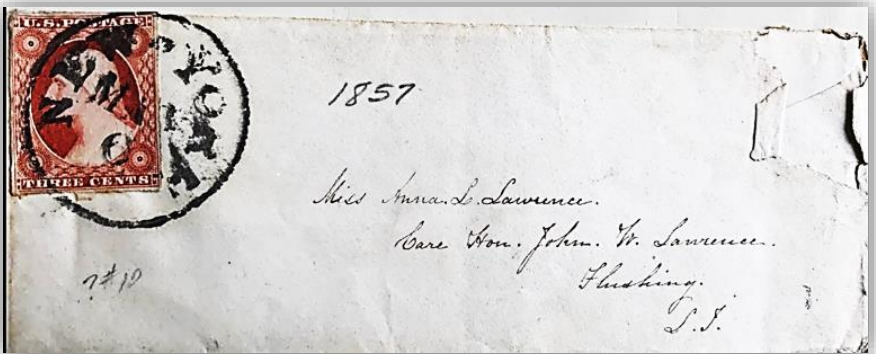 U.S. POSTAGE
THREE CENTS
NEW-YORK
1857
Miss Anna. L. Lawrence.
Care Hon. John. W. Lawrence.
Flushing.
L. I.
?#10